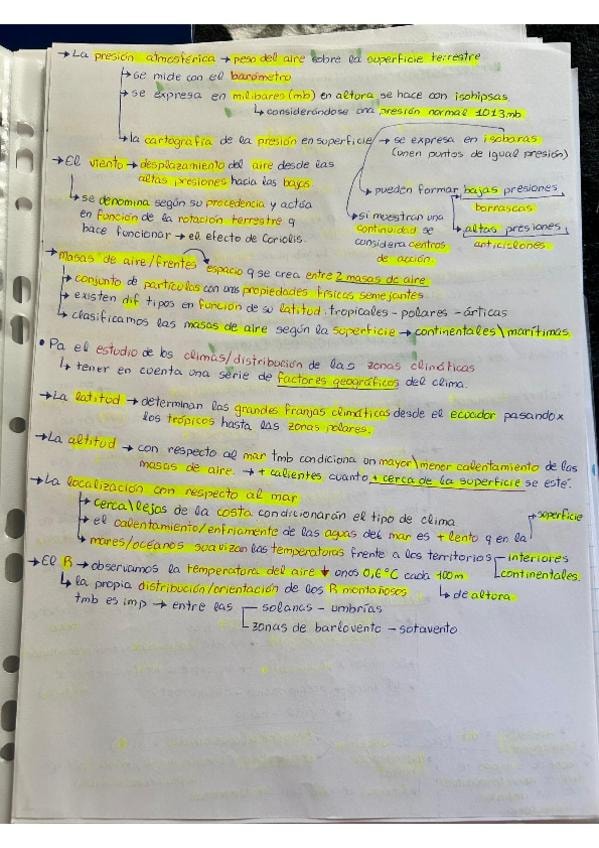 → La presión atmosférica → peso del aire sobre la superficie terrestre
↳ se mide con el barómetro
↳ se expresa en milibares (mb) en altora se hace con isohipsas.
↳ considerándose una presión normal 1013mb
↳ la cartografía de la presión en superficie → se expresa en isobaras
(unen puntos de igual presión)
→ El viento → desplazamiento del aire desde las
altas presiones hacia las bajas.
→ pueden formar bajas presiones,
borrascas
↳ se denomina según su procedencia y actúa
en función de la rotación terrestre q
hace funcionar → el efecto de Coriolis.
→ altas presiones,
anticiclones.
si muestran una
continuidad se
considera centros
de acción.
→ Masas de aire/frentes espacio q se crea entre 2 masas de aire
↳ conjunto de partículas con uns propiedades físicas semejantes
↳ existen dif tipos en función de su latitud. tropicales - polares - árticas
↳ clasificamos las masas de aire según la superficie → continentales\marítimas
• Pa el estudio de los climas/distribución de las zonas climáticas
↳ tener en cuenta una serie de factores geográficos del clima.
→ La latitud → determinan las grandes franjas climáticas desde el ecuador pasandox
los trópicos hasta las zonas polares.
→ La altitud → con respecto al mar tmb condiciona un mayor\menor calentamiento de las
masas de aire. → + calientes cuanto + cerca de la superficie se esté.
→ La localización con respecto al mar
↳ cerca/lejos de la costa condicionarán el tipo de clima
↳ el calentamiento/enfriamiento de las aguas del mar es + lento q en la superficie
↳ mares/océanos suavizan las temperaturas frente a los territorios - interiores
continentales.
→ El R → observamos la temperatura del aire ↓ unos 0,6°C cada 100m
↳ de altora
↳ la propia distribución/orientación de los R montañosos
tmb es imp → entre las solanas - umbrías
zonas de barlovento - sotavento